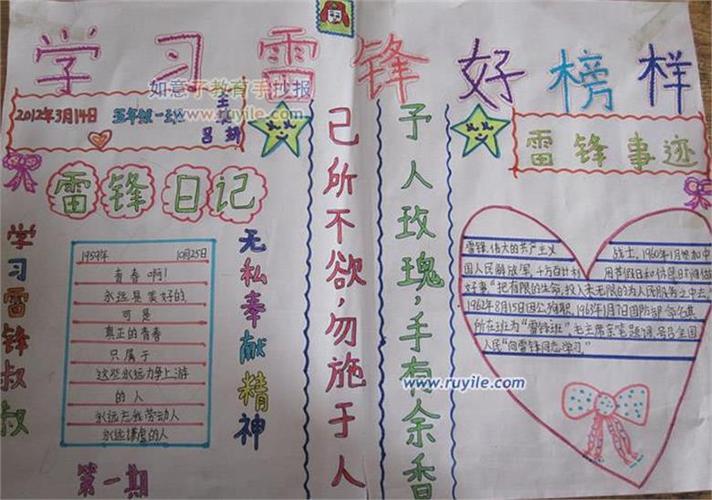 学习雷锋好榜样
如意了教育手抄报
www.ruyile.com
2012年3月14日 五年级一班
雷锋日记
学习雷锋叔叔
1959年 10月25日
青春啊!
永远是美好的,
可是
真正的青春
只属于
这些永远力争上游
的人
永远忘我劳动人
永远谦虚的人
无私奉献精神
第一期
己所不欲,勿施于人
予人玫瑰,手有余香
雷锋事迹
雷锋,伟大的共产主义战士,1960年1月参加中
国人民解放军,千方百计利用节假日和休息日
好事“把有限的生命,投入未无限的为人民服务之中去。”
1962年8月15日因公殉职,1963年1月7日国防部命名其
所在班为“雷锋班”,毛主席亲笔题词,号召全国
人民“向雷锋同志学习”
www.ruyile.com